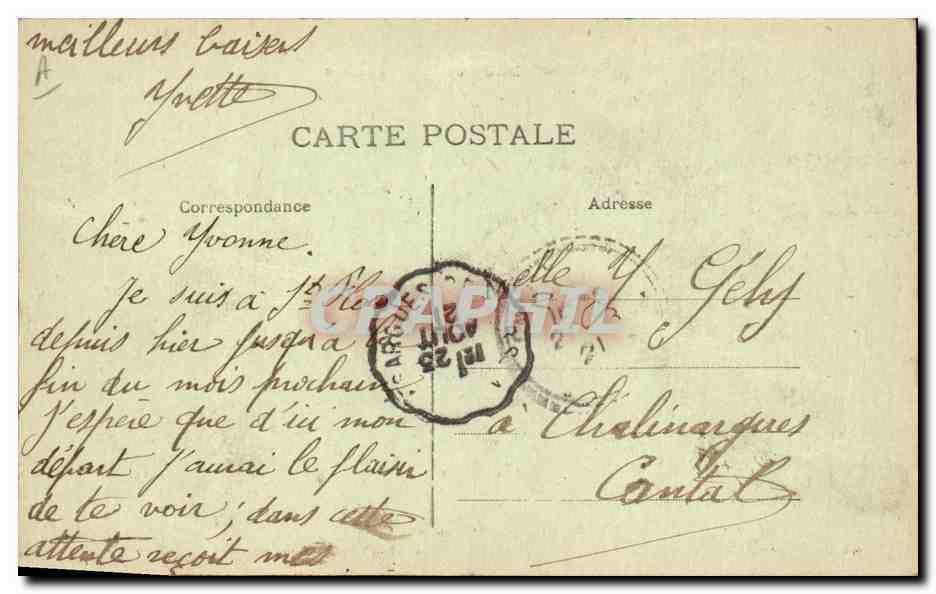 meilleurs baisers
Yvette
A
CARTE POSTALE
Correspondance
Chère Yvonne.
Je suis à St Flour
depuis hier jusqu'à la
fin du mois prochain
J'espère que d'ici mon
départ j'aurai le plaisir
de te voir; dans cette
attente reçoit mes
Adresse
elle Y. Gély
à Chalinargues
Cantal
CARAPHIL
23
AOUT
21